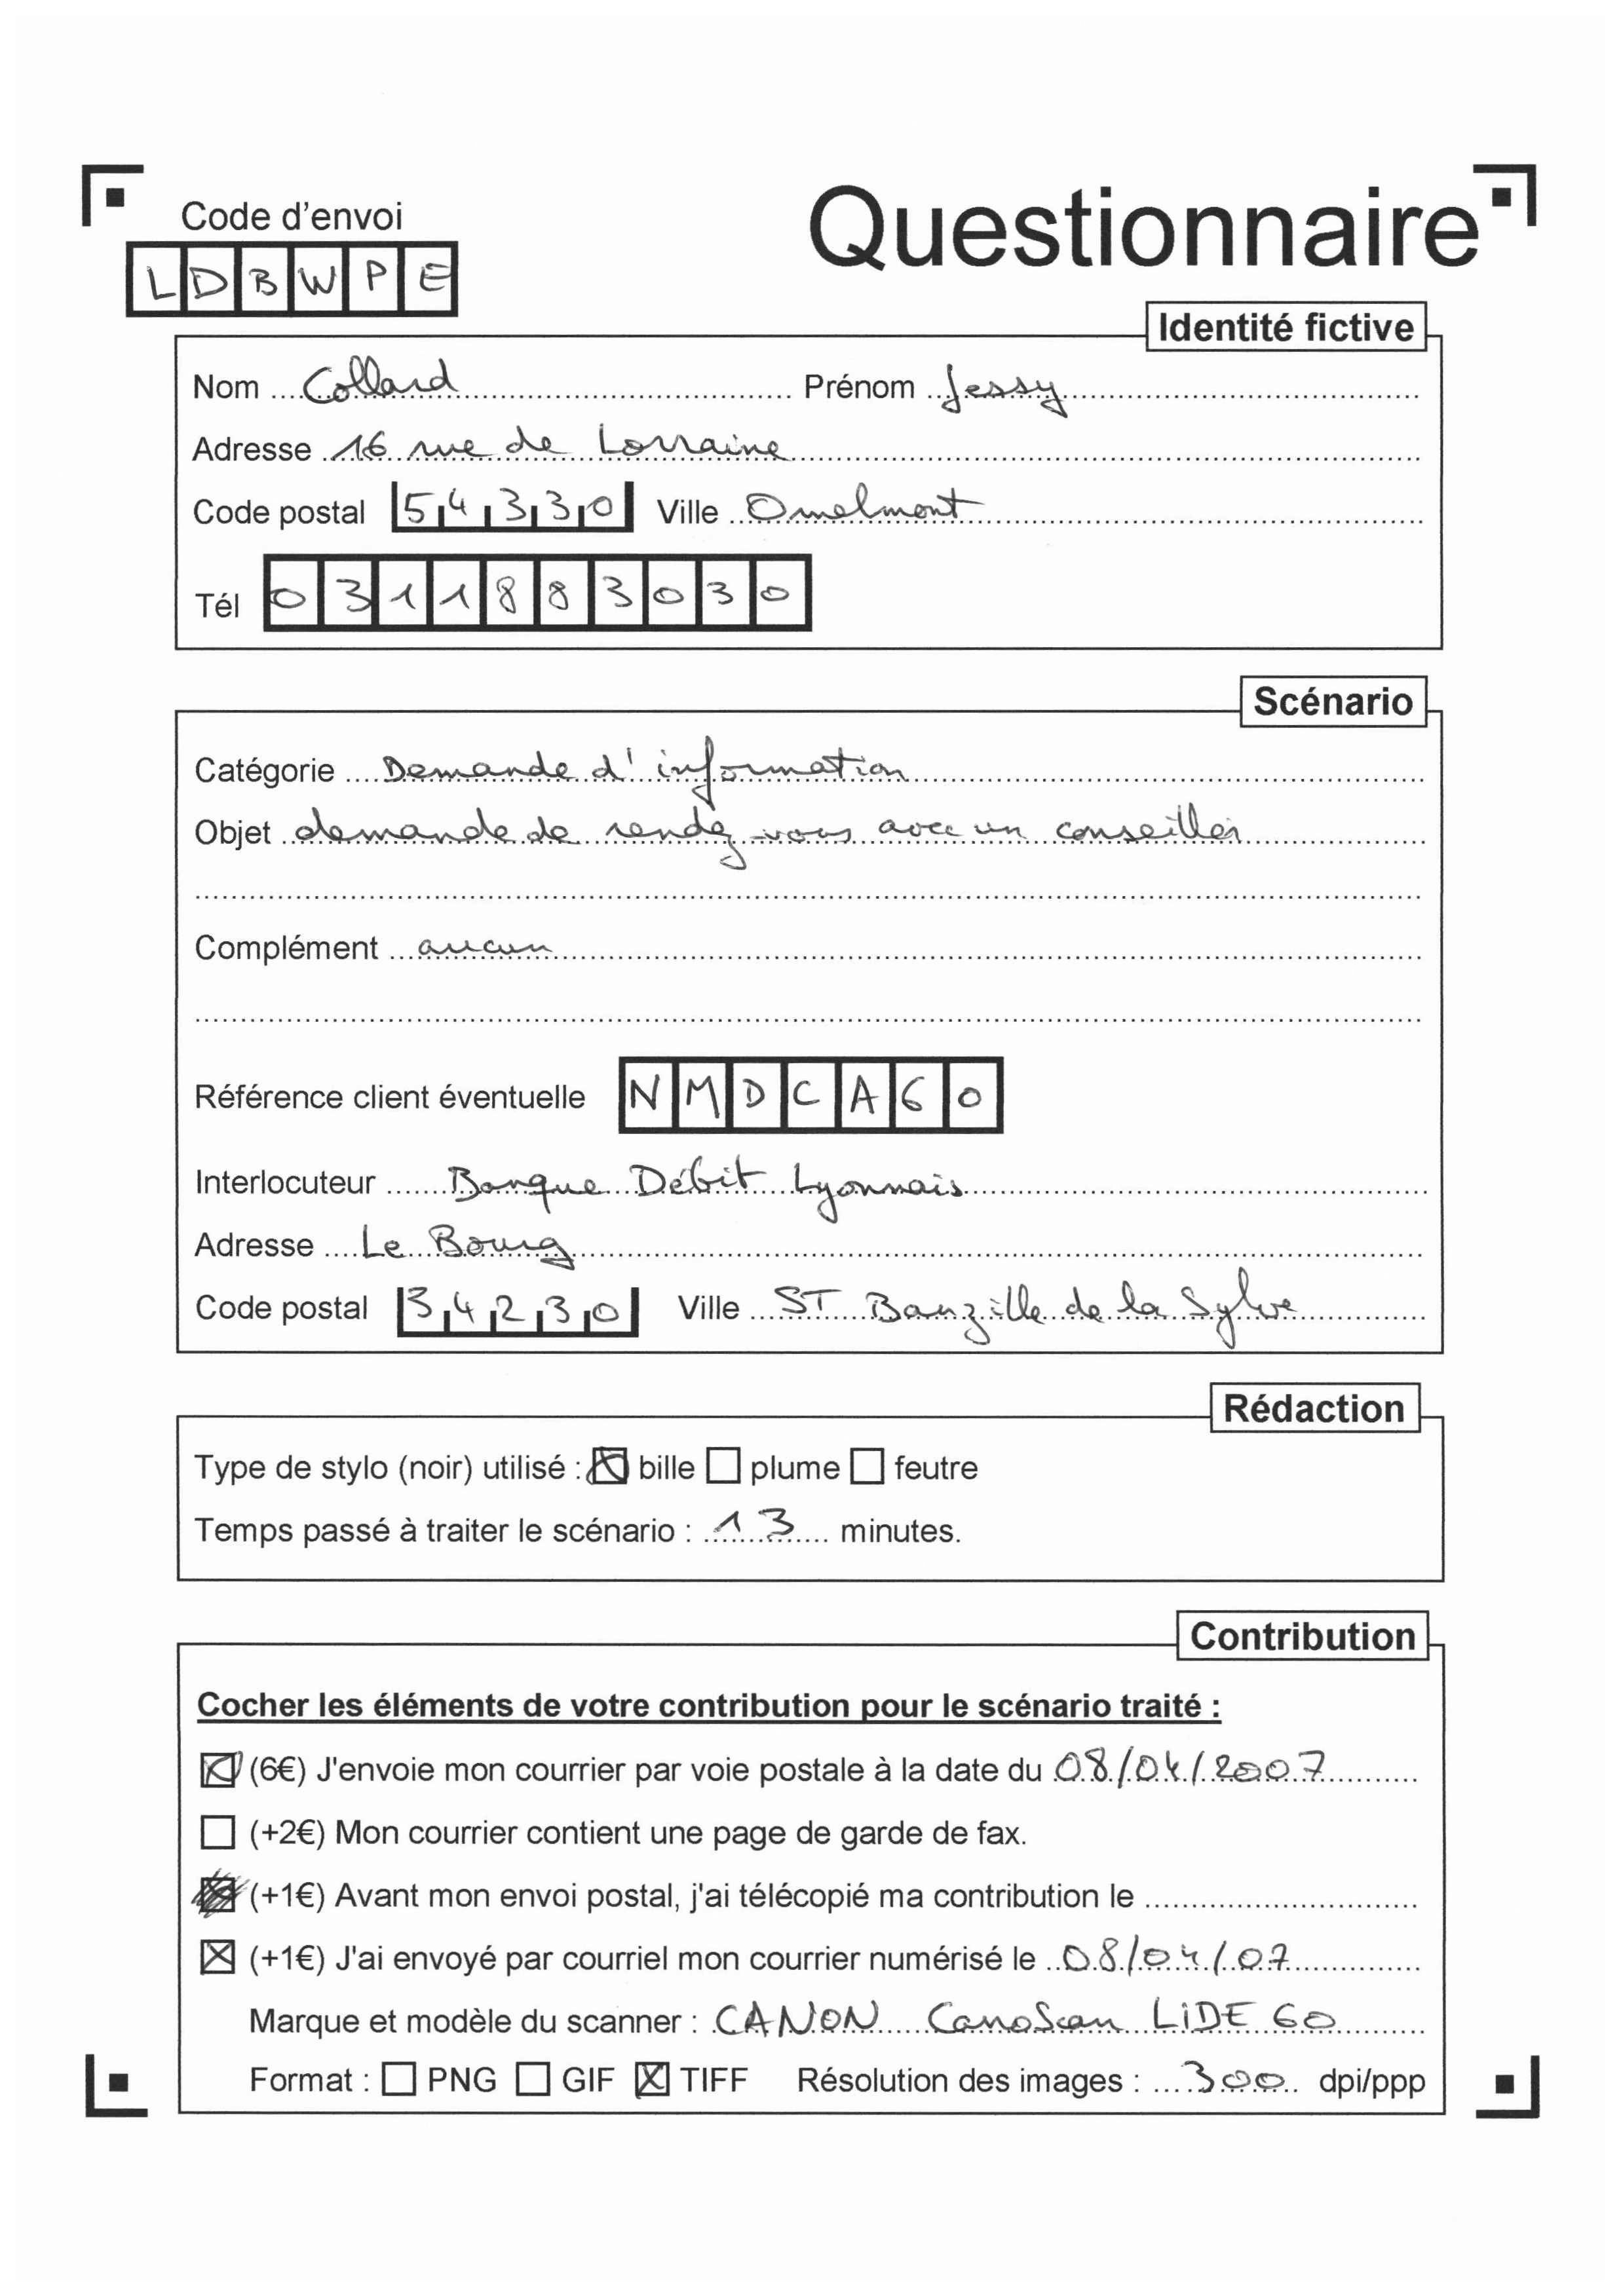 Questionnaire
Code d'envoi
LDBWPE
Identité fictive
Nom Collard Prénom Jessy
Adresse 16 rue de Lorraine
Code postal 54330 Ville Omelmont
Tél 0311883030
Scénario
Catégorie Demande d'information
Objet demande de rendez-vous avec un conseiller
Complément aucun
Référence client éventuelle NMDCA60
Interlocuteur Banque Débit Lyonnais
Adresse Le Bourg
Code postal 34230 Ville ST Bauzille de la Sylve
Rédaction
Type de stylo (noir) utilisé : ☒ bille ☐ plume ☐ feutre
Temps passé à traiter le scénario : 13 minutes.
Contribution
Cocher les éléments de votre contribution pour le scénario traité :
☒ (6€) J'envoie mon courrier par voie postale à la date du 08/04/2007
☐ (+2€) Mon courrier contient une page de garde de fax.
(+1€) Avant mon envoi postal, j'ai télécopié ma contribution le
☒ (+1€) J'ai envoyé par courriel mon courrier numérisé le 08/04/07
Marque et modèle du scanner : CANON CanoScan LiDE 60
Format : ☐ PNG ☐ GIF ☒ TIFF Résolution des images : 300 dpi/ppp